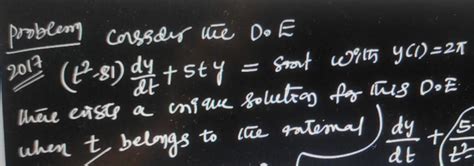 Problem Consider the D.E
2017 (t²-81) dy/dt + 5ty = sint with y(1)=2π
there exists a unique solution for this D.E.
when t belongs to the interval) dy/dt + (5